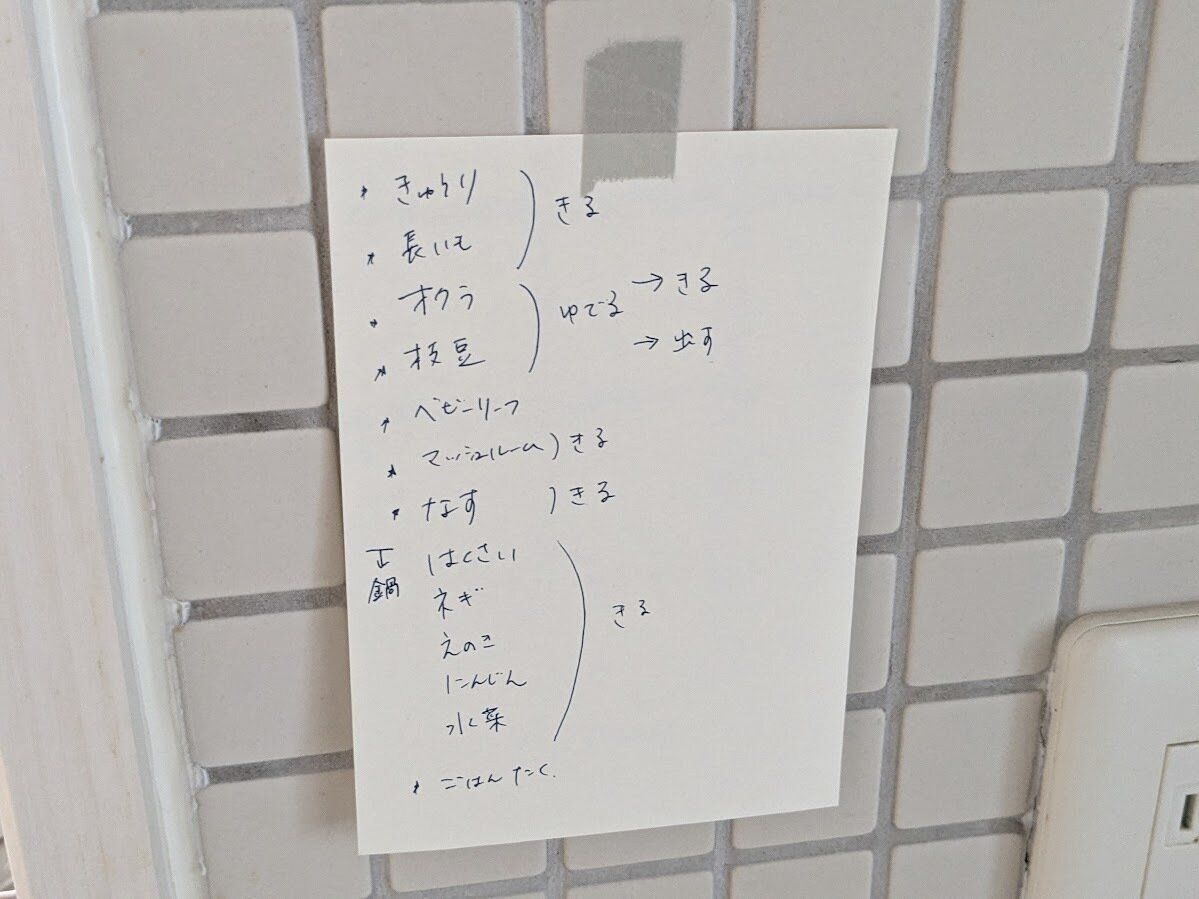 ・きゅうり ) きる
・長いも
・オクラ ) ゆでる → きる
・枝豆 → 出す
・ベビーリーフ
・マッシュルーム ) きる
・なす ) きる
鍋 はくさい
ネギ
えのき
にんじん ) きる
水菜
・ごはんたく.